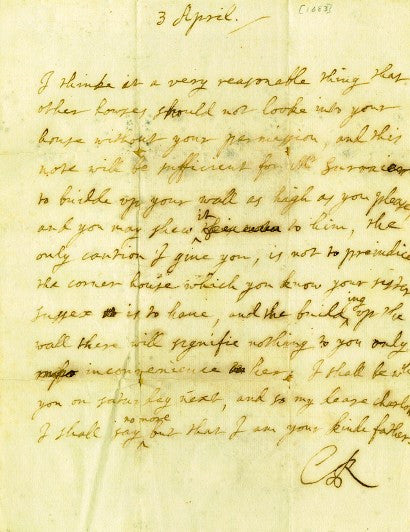 3 April.
[1683]
I thinke it a very reasonable thing that
other houses should not looke into your
house without your permission, and this
note will be sufficient for Mr Surveier
to builde up your wall as high as you please
and you may shew it to him, the
only caution I give you, is not to prejudice
the corner house which you know your sister
Sussex is to have, and the building up the
wall there will signifie nothing to you only
inconvenience her. I shall be with
you on saturday next, and so my deare charlot
I shall say no more but that I am your kinde father
CR